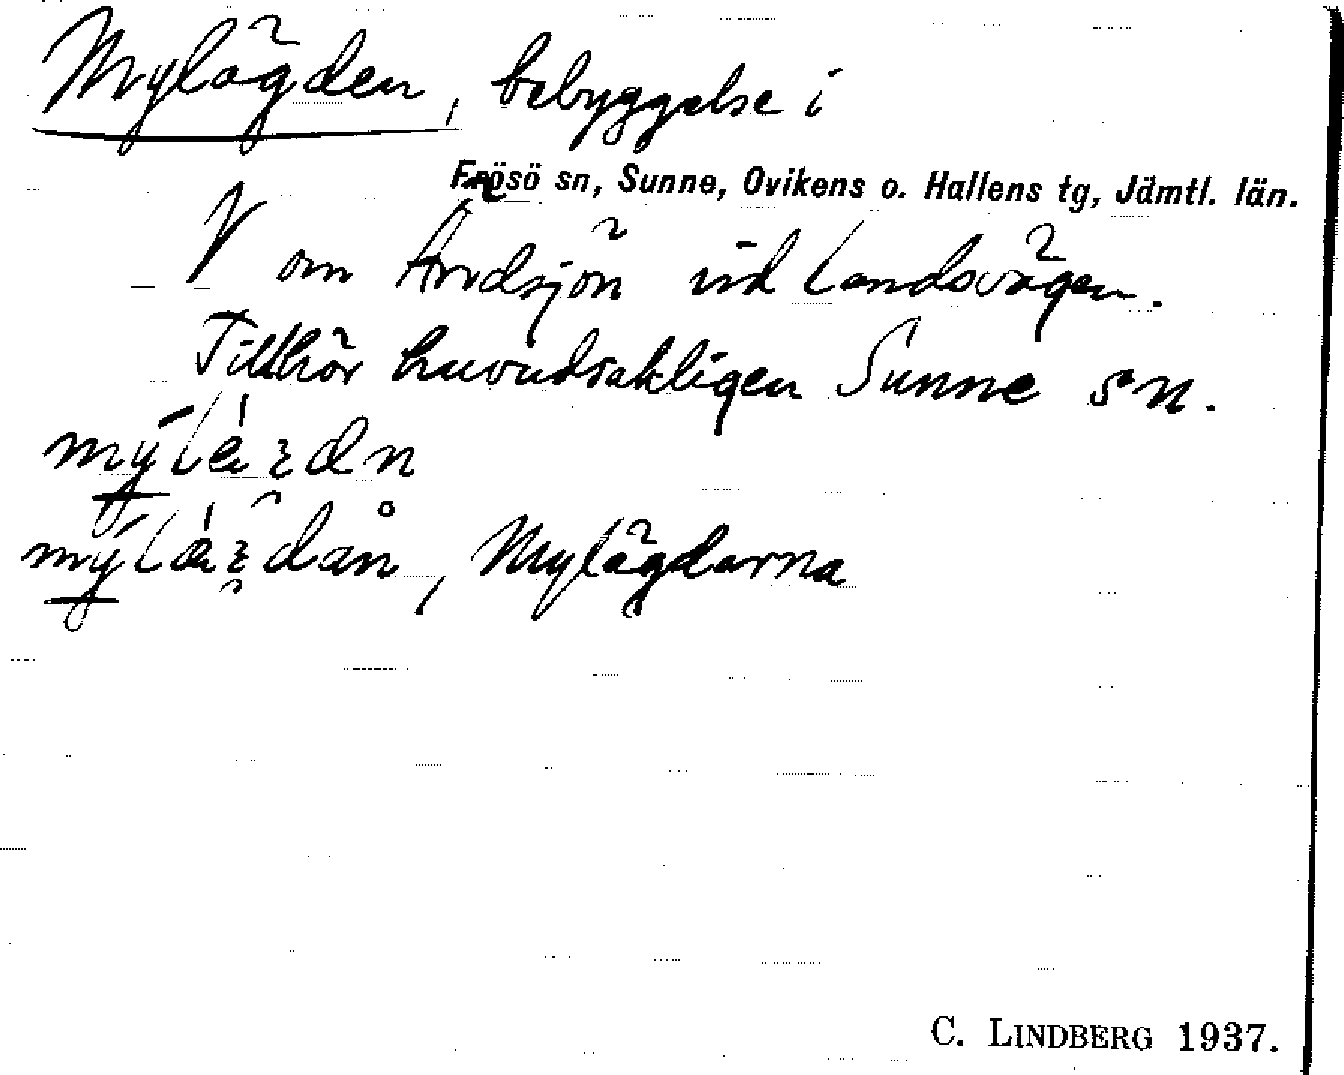 Mylägden, bebyggelse i
Frösö sn, Sunne, Ovikens o. Hallens tg, Jämtl. län.
V om Arvdsjön vid landsvägen.
Tillhör huvudsakligen Sunne sn.
, Mylägdarna
C. LINDBERG 1937.